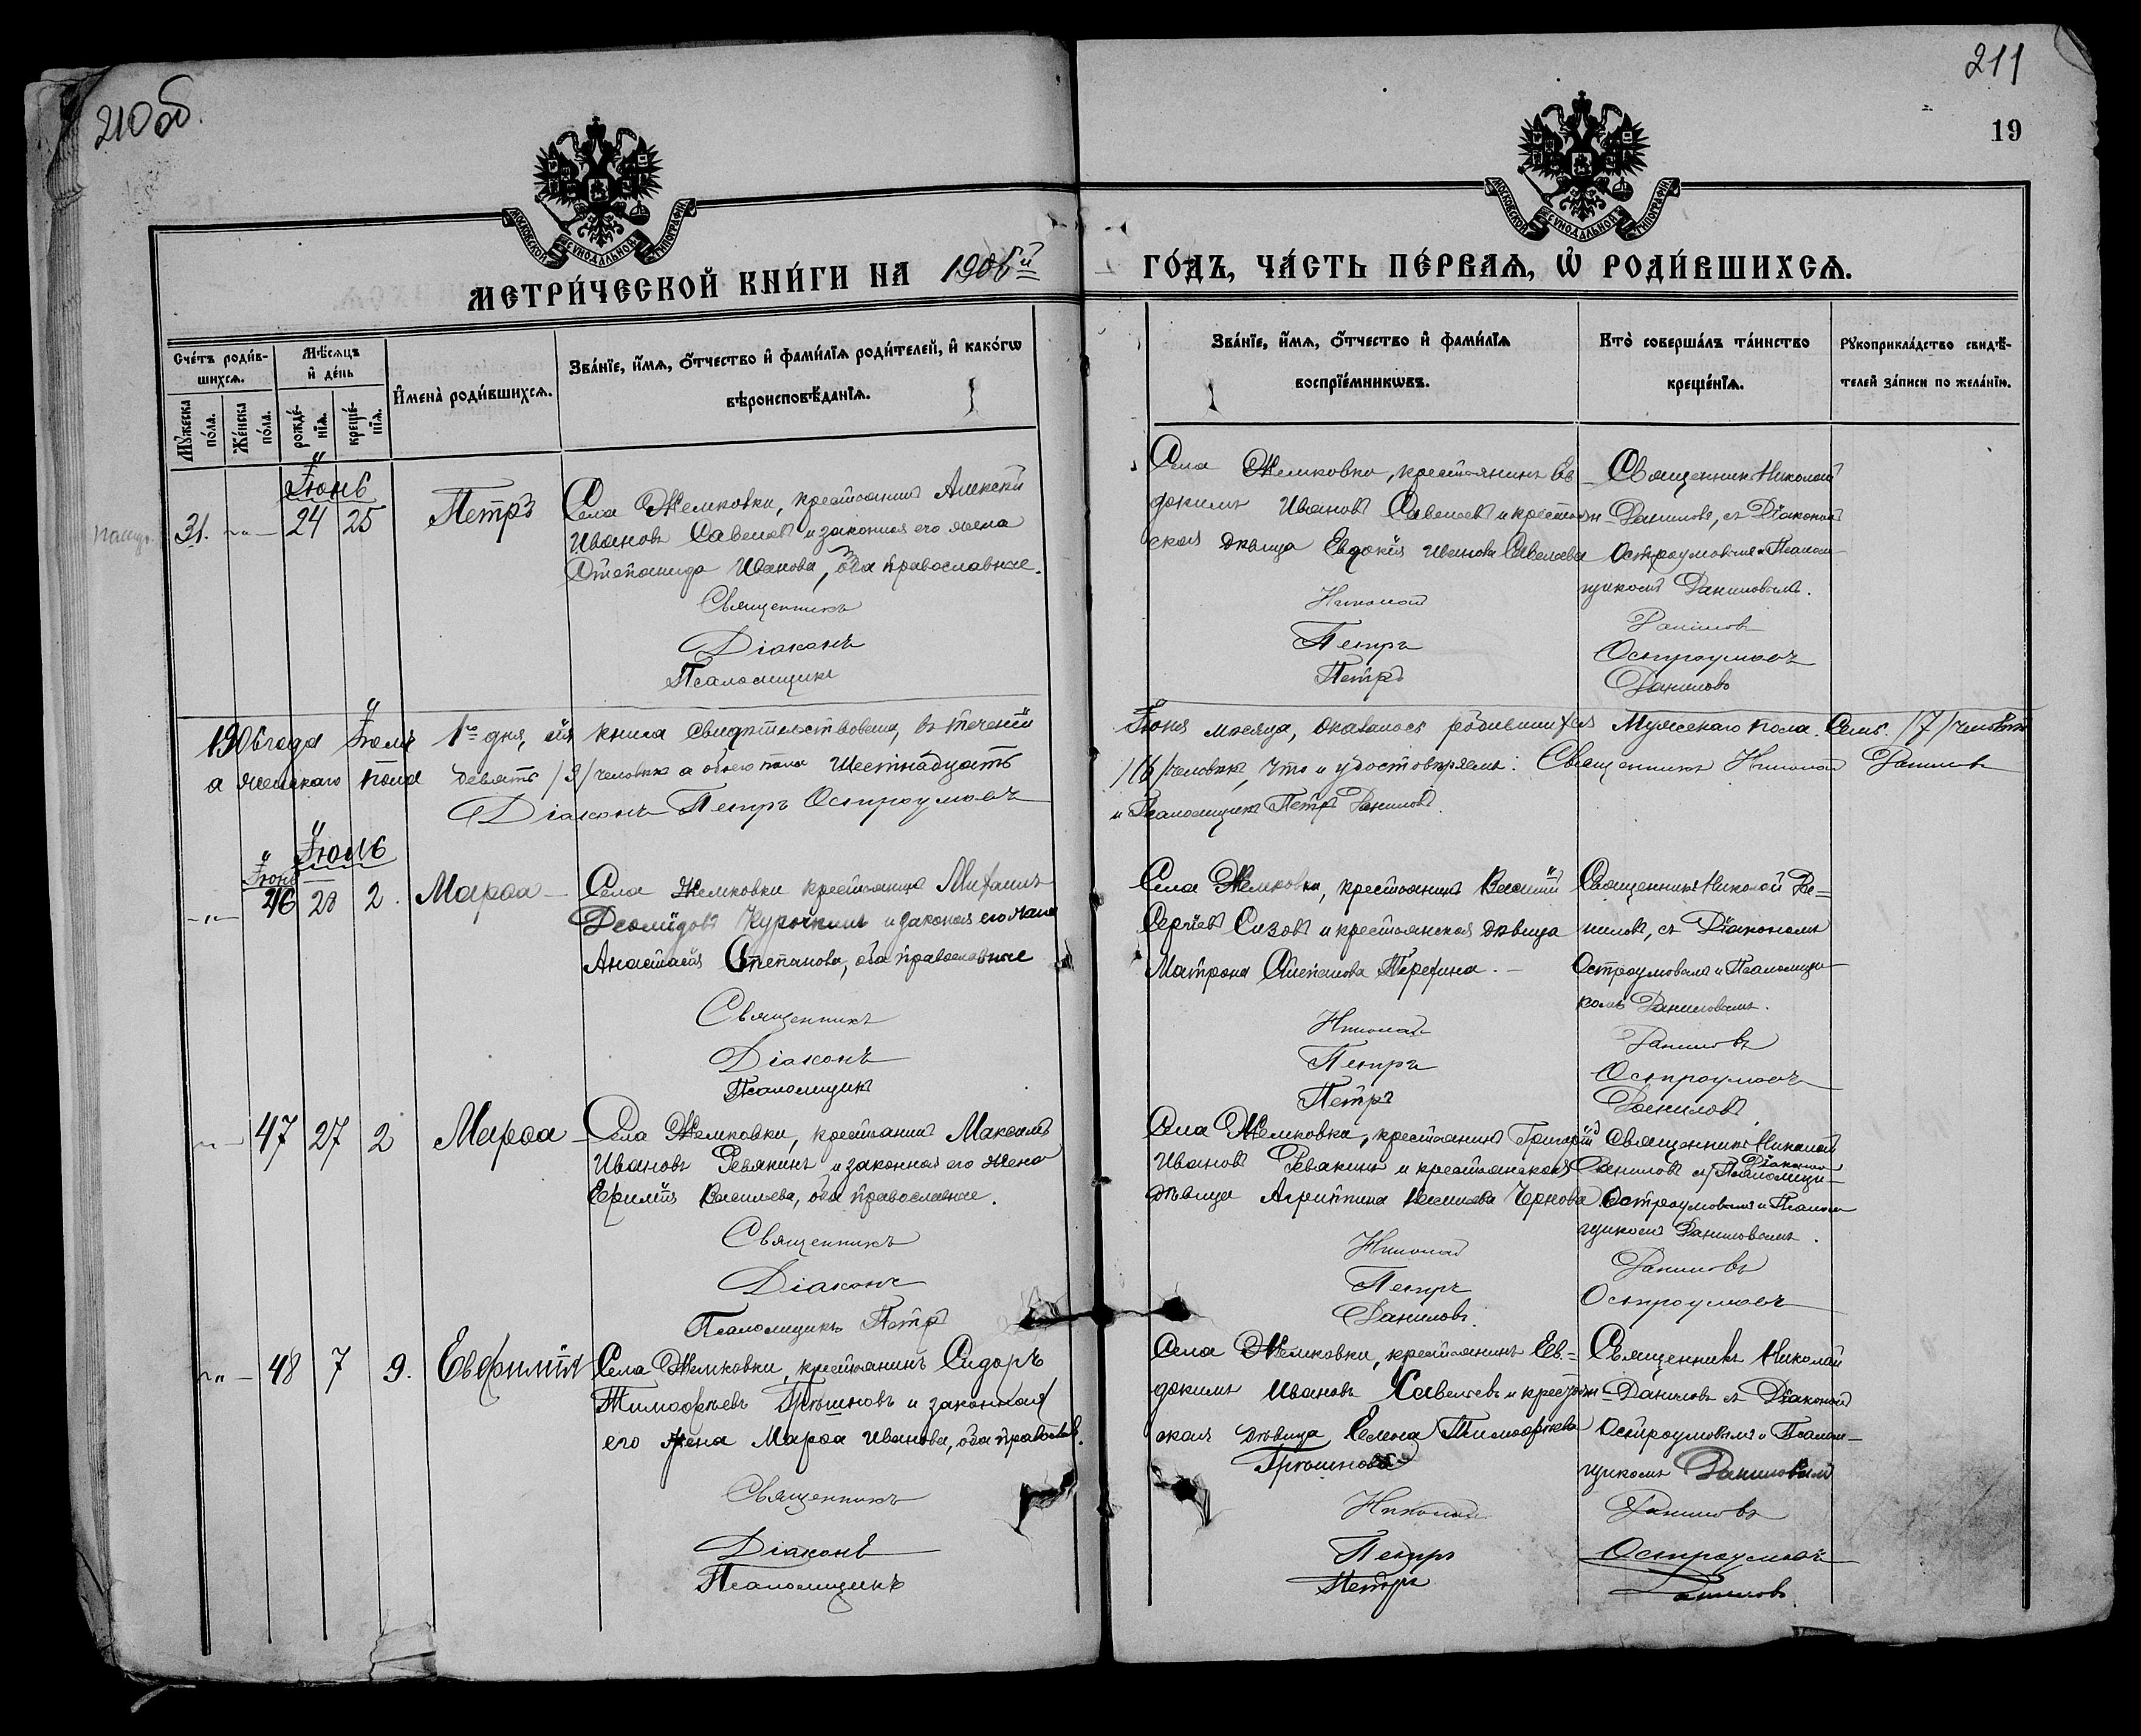 210 об.
211
19
МОСКОВСКОЙ СѴНОДАЛЬНОЙ ТИПОГРАФІИ
МОСКОВСКОЙ СѴНОДАЛЬНОЙ ТИПОГРАФІИ
МЕТРИ́ЧЕСКОЙ КНИ́ГИ НА 1906й
ГО́ДЪ, ЧА́СТЬ ПЕ́РВАѦ, Ѡ҆ РОДИ́ВШИХСѦ.
Сче́тъ роди́в-
шихсѧ.
Мꙋ́жеска по́ла.
Же́нска по́ла.
Мѣ́сѧцъ
и҆ де́нь
рожде́-
нїѧ.
креще́-
нїѧ.
И҆мена̀ роди́вшихсѧ.
Зва́нїе, и҆́мѧ, ѻ҆́тчество и҆ фами́лїѧ роди́телей, и҆ како́гѡ
вѣроисповѣ́данїѧ.
Зва́нїе, и҆́мѧ, ѻ҆́тчество и҆ фами́лїѧ
воспрїе́мникѡвъ.
Кто̀ соверша́лъ та́инство
креще́нїѧ.
Рꙋкоприкла́дство свидѣ́-
телей за́писи по жела́нїю.
Іюнь
31. -"- 24 25 Петръ
Села Жемковки, крестьянинъ Алексѣй
Ивановъ Савельевъ и законная его жена
Степанида Иванова, оба православные.
Священникъ
Діаконъ
Псаломщикъ
Села Жемковки, крестьянинъ Ев-
докимъ Ивановъ Савельевъ и крестьян-
ская дѣвица Евдокія Иванова Савельева
Николай
Петръ
Петръ
Священникъ Николай
Даниловъ, съ Діакономъ
Остроумовымъ и Псалом-
щикомъ Даниловымъ.
Даниловъ
Остроумовъ
Даниловъ
1906 года Іюля 1го дня, сія книга свидѣтельствована, въ теченіи Іюня мѣсяца, оказалось родившихся Мужескаго пола Семь /7/ человѣкъ
а женскаго пола девять /9/ человѣкъ а обоего пола Шестнадцать /16/ человѣкъ, что и удостовѣряемъ: Священникъ Николай Даниловъ
Діаконъ Петръ Остроумовъ и Псаломщикъ Петръ Даниловъ
Іюль
Іюнь
-"- 46 28 2. Марѳа
Села Жемковки крестьянинъ Михаилъ
Деомидовъ Курочкинъ и законная его жена
Анастасія Степанова, оба православные
Священникъ
Діаконъ
Псаломщикъ
Села Жемковки, крестьянинъ Василій
Сергѣевъ Сизовъ и крестьянская дѣвица
Матрона Степанова
Николай
Петръ
Петръ
Священникъ Николай Да-
ниловъ, съ Діакономъ
Остроумовымъ и Псаломщи-
комъ Даниловымъ.
Даниловъ
Остроумовъ
Даниловъ
-"- 47 27 2 Марѳа
Села Жемковки, крестьянинъ Максимъ
Ивановъ Ревякинъ и законная его жена
Ефимія Васильева, оба православные.
Священникъ
Діаконъ
Псаломщикъ Петръ
Села Жемковки, крестьянинъ Григорій
Ивановъ Ревякинъ и крестьянская
дѣвица Агриппина Васильева Чернова
Николай
Петръ
Даниловъ.
Священникъ Николай
Даниловъ съ Діакономъ
Остроумовымъ и Псалом-
щикомъ Даниловымъ.
Даниловъ
Остроумовъ
-"- 48 7 9. Евфимія
Села Жемковки, крестьянинъ Сидоръ
Тимофеевъ Грѣшновъ и законная
его жена Марѳа Иванова, оба правосл.
Священникъ
Діаконъ
Псаломщикъ
Села Жемковки, крестьянинъ Ев-
докимъ Ивановъ Савельевъ и крестьян-
ская дѣвица Елена Тимофеева
Грѣшнова
Николай
Петръ
Петръ
Священникъ Николай
Даниловъ съ Діакономъ
Остроумовымъ и Псалом-
щикомъ Даниловымъ
Даниловъ
Остроумовъ
Даниловъ